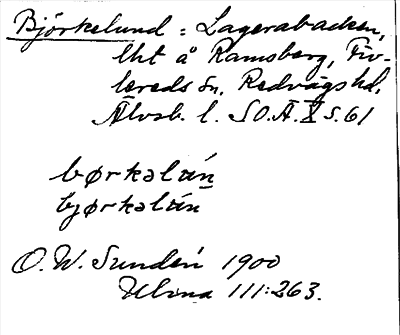 Björkelund = Lagerabacken,
lht å Ramsberg, Tiv-
lereds sn, Redvägs hd,
Älvsb. l. SOÄ X s. 61
børkəlún̲
bjørkəlún
O. W. Sundén 1900
Ulvna 111:263.